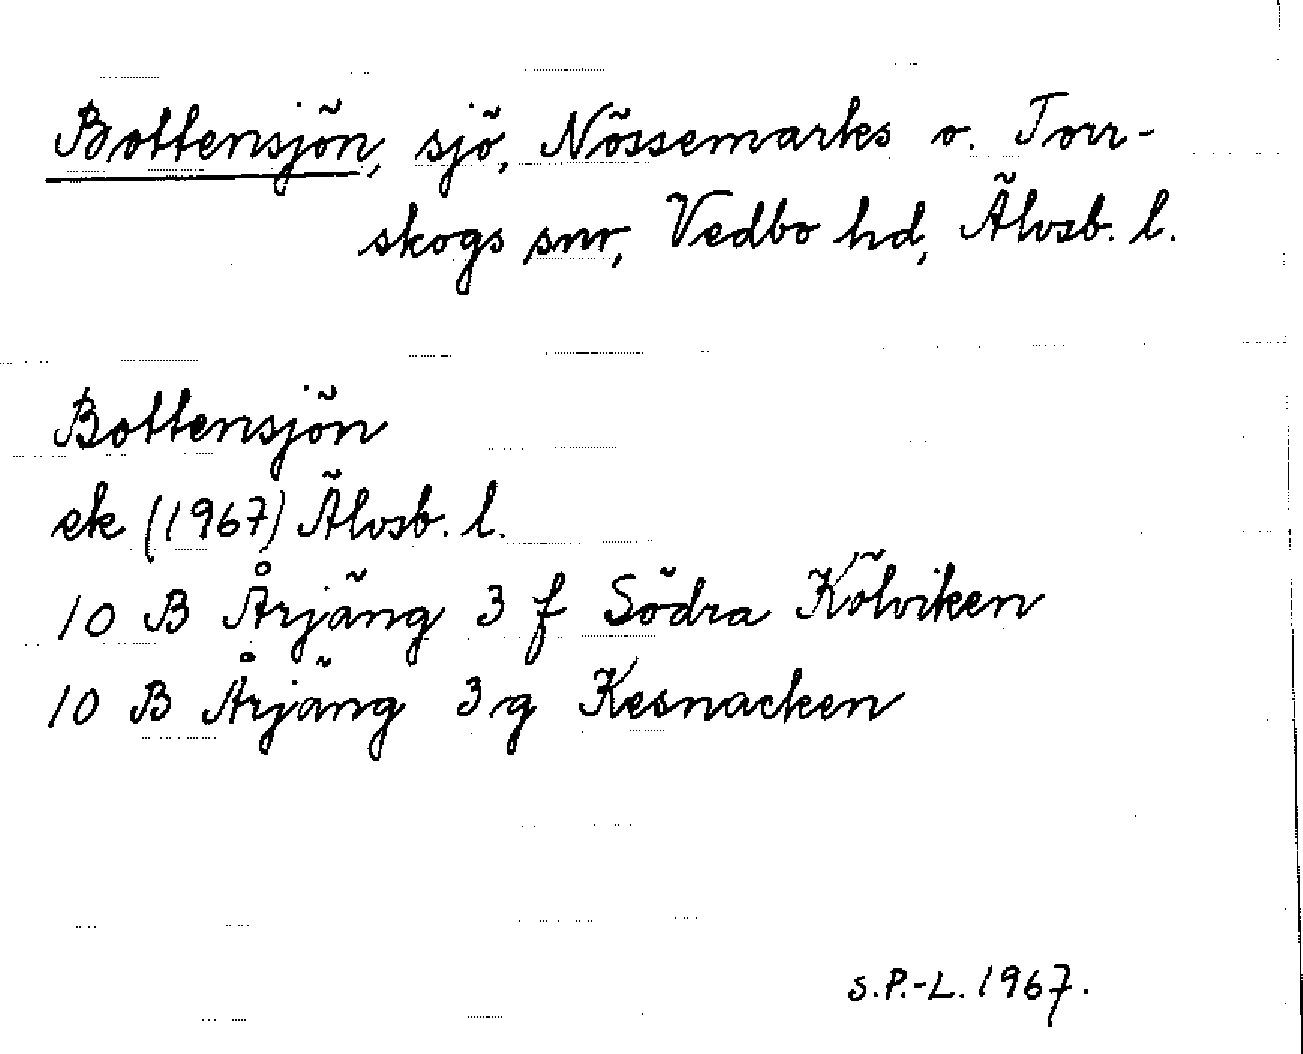 Bottensjön, sjö, Nössemarks o. Torr-
skogs snr, Vedbo hd, Älvsb. l.
Bottensjön
ek (1967) Älvsb. l.
10 B Årjäng 3 f Södra Kölviken
10 B Årjäng 3 g Kesnacken
S.P.-L. 1967.